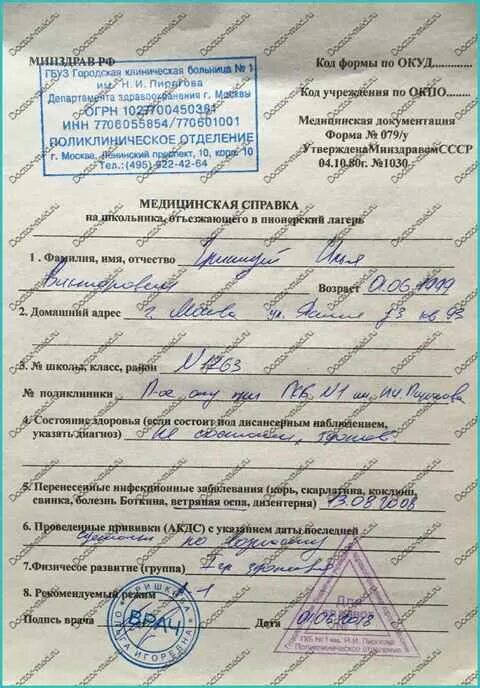 МИНЗДРАВ РФ
ГБУЗ Городская клиническая больница № 1
им. Н.И. Пирогова
Департамента здравоохранения г. Москвы
ОГРН 1027700450381
ИНН 7706055854/770601001
ПОЛИКЛИНИЧЕСКОЕ ОТДЕЛЕНИЕ
г. Москва, Ленинский проспект, 10, корп. 10
Тел.:(495) 922-42-64
Код формы по ОКУД............
Код учреждения по ОКПО.......
Медицинская документация
Форма № 079/у
УтвержденаМинздравомСССР
04.10.80г. №1030
МЕДИЦИНСКАЯ СПРАВКА
на школьника, отъезжающего в пионерский лагерь
1 . Фамилия, имя, отчество Илья
Викторович Возраст 01.06.1999
2. Домашний адрес г. Москва ул. 73 кв 93
3. № школы, класс, район N1763
№ поликлиники П-ое отд при ГКБ N1 им. Н.И. Пирогова
4. Состояние здоровья (если состоит под дисансерным наблюдением,
указать диагноз) не состоит, здоров
5. Перенесенные инфекционные заболевания (корь, скарлатина, коклюш,
свинка, болезнь Боткина, ветряная оспа, дизентерия) 13.08.2008
6. Проведенные прививки (АКДС) с указанием даты последней
сделаны по возрасту
7.Физичесое развитие (группа) I-гр здоровья
8. Рекомендуемый режим 1
Подпись врача Дата 01.06.2018
ГРИШКИНА
ОЛЬГА ИГОРЕВНА
ВРАЧ
Для
справок
ГКБ №1 им. Н.И. Пирогова
Поликлиническое отделение
Doctor-med.ru